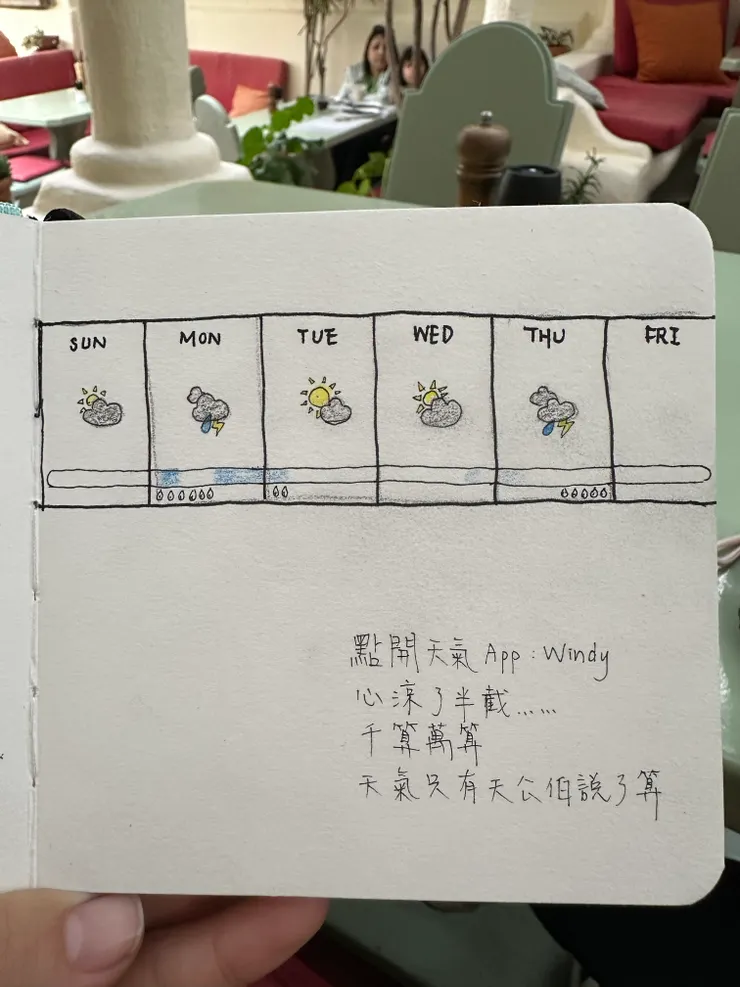 SUN MON TUE WED THU FRI
點開天氣 App : Windy
心涼了半截......
千算萬算
天氣只有天公伯說了算